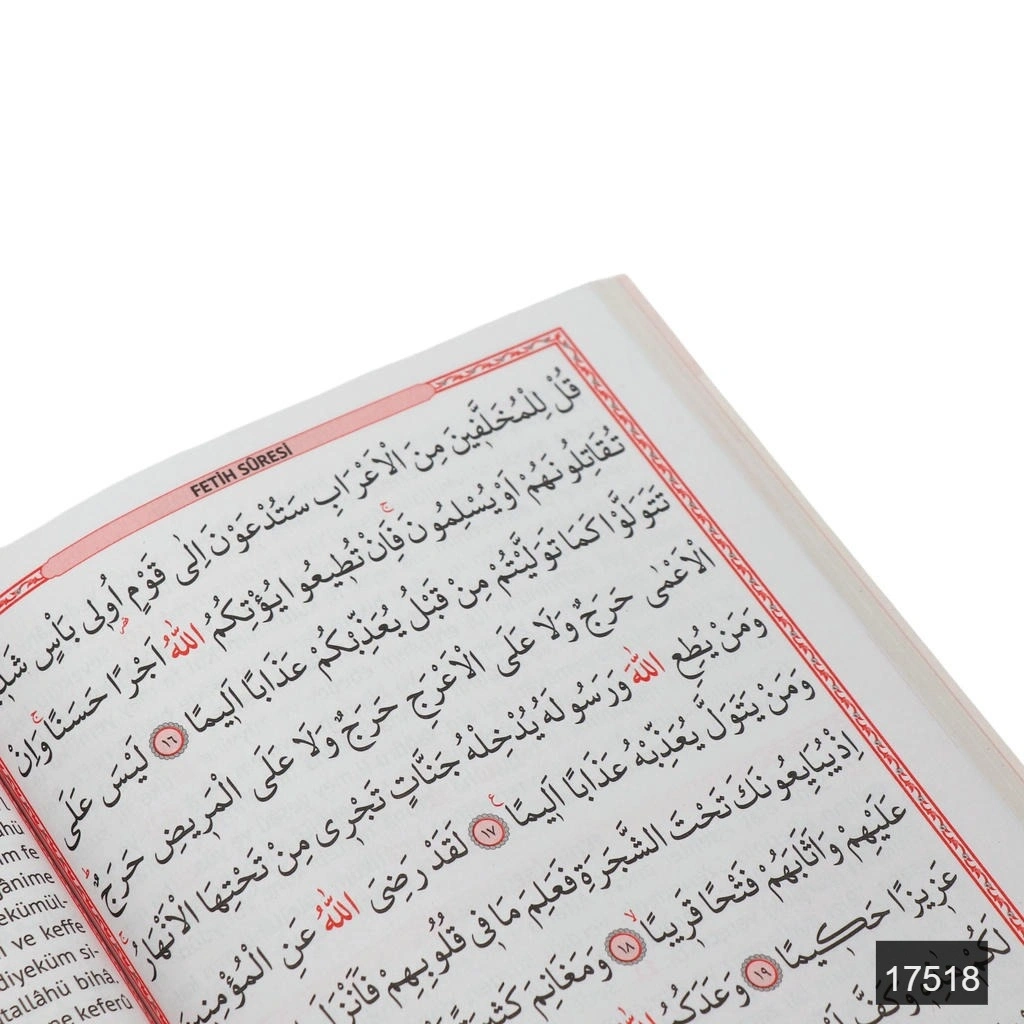 FETİH SÛRESİ
قُلْ لِلْمُخَلَّف۪ينَ مِنَ الْاَعْرَابِ سَتُدْعَوْنَ اِلٰى قَوْمٍ اُو۬ل۪ى بَأْسٍ
تُقَاتِلُونَهُمْ اَوْ يُسْلِمُونَۚ فَاِنْ تُط۪يعُوا يُؤْتِكُمُ اللّٰهُ اَجْرًا حَسَنًاۚ وَاِنْ
تَتَوَلَّوْا كَمَا تَوَلَّيْتُمْ مِنْ قَبْلُ يُعَذِّبْكُمْ عَذَابًا اَل۪يمًا ﴿١٦﴾ لَيْسَ عَلَى
الْاَعْمٰى حَرَجٌ وَلَا عَلَى الْاَعْرَجِ حَرَجٌ وَلَا عَلَى الْمَر۪يضِ حَرَجٌۜ
وَمَنْ يُطِعِ اللّٰهَ وَرَسُولَهُ يُدْخِلْهُ جَنَّاتٍ تَجْر۪ى مِنْ تَحْتِهَا الْاَنْهَارُۚ
وَمَنْ يَتَوَلَّ يُعَذِّبْهُ عَذَابًا اَل۪يمًا ﴿١٧﴾ لَقَدْ رَضِىَ اللّٰهُ عَنِ الْمُؤْمِن۪ينَ
اِذْ يُبَايِعُونَكَ تَحْتَ الشَّجَرَةِ فَعَلِمَ مَا ف۪ى قُلُوبِهِمْ فَاَنْزَلَ
عَلَيْهِمْ وَاَثَابَهُمْ فَتْحًا قَر۪يبًاۙ ﴿١٨﴾ وَمَغَانِمَ
عَز۪يزًا حَك۪يمًا ﴿١٩﴾ وَعَدَكُمُ
im fe
ânime
ekümül-
ve keffe
diyeküm si-
tallâhü bihâ
ne keferû
17518